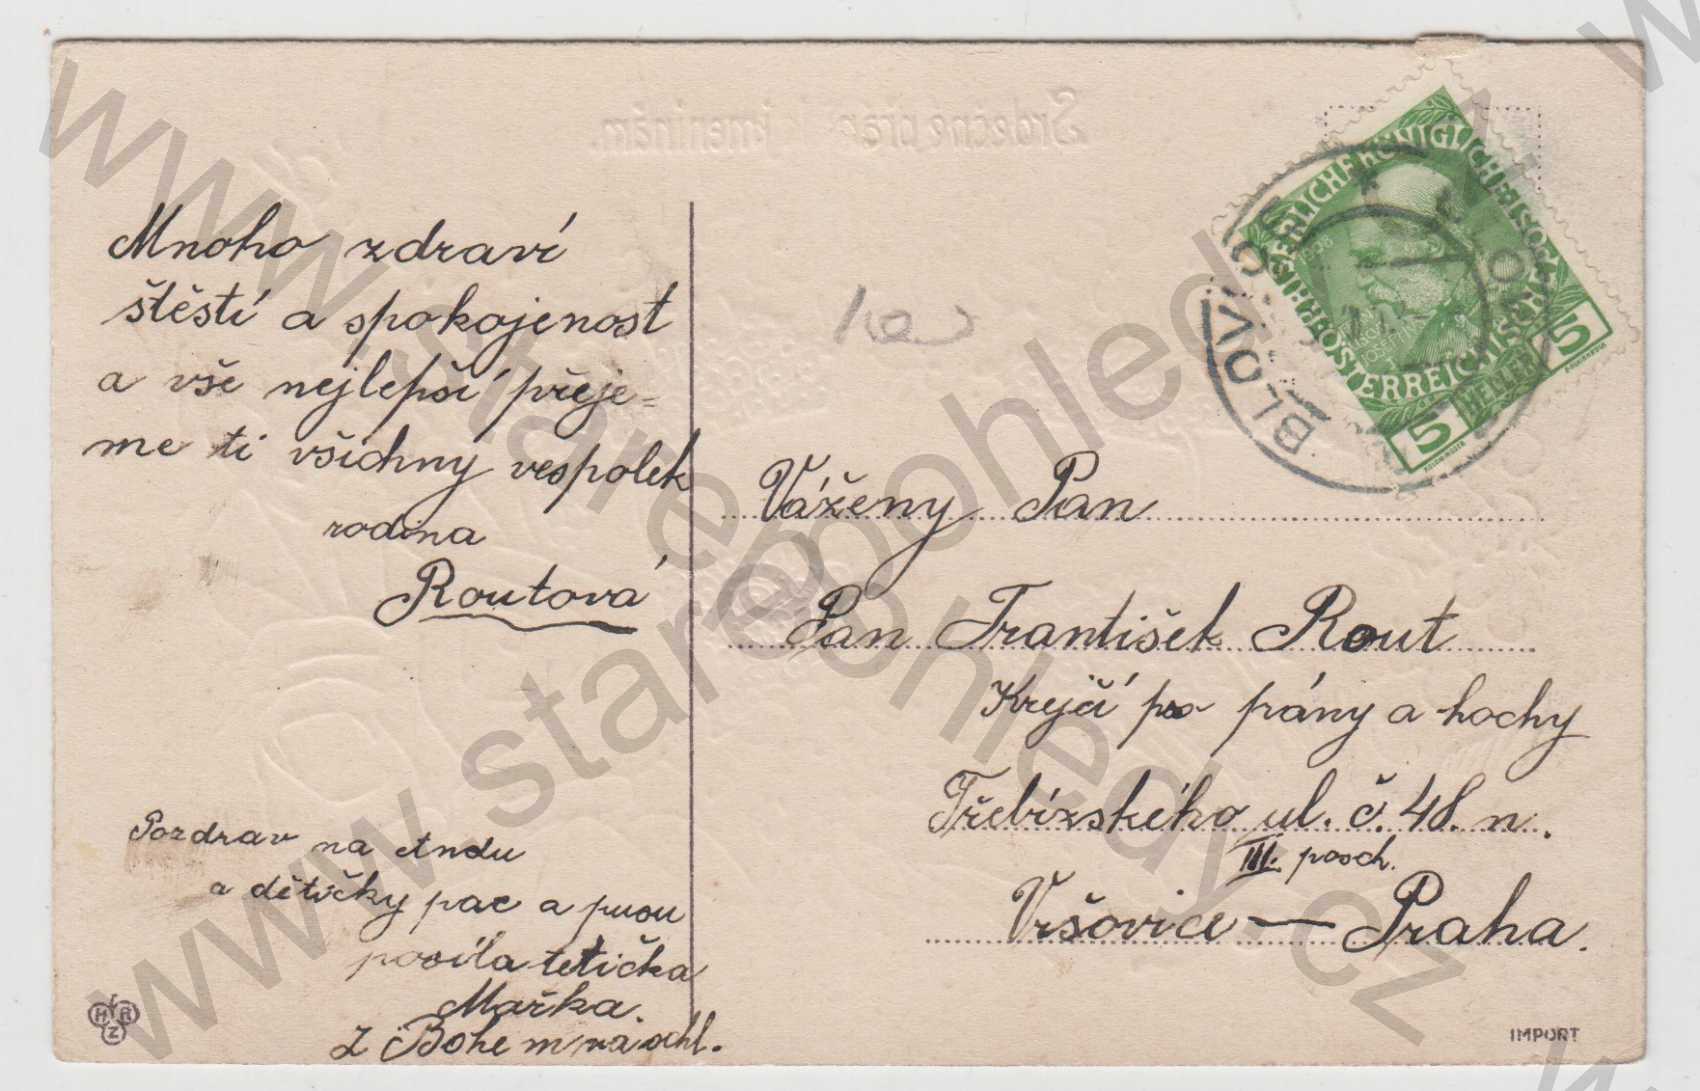 Srdečné k jmeninám.
Mnoho zdraví
štěstí a spokojenost
a vše nejlepší přeje=
me ti všichny vespolek
rodina
Routová
Pozdrav na Andu
a dětičky pac a pusu
posíla tetička
Mařka.
Z Bohem na schl.
HRZ
KAISERLICHE KÖNIGLICHE ÖSTERREICHISCHE
1908
5 HELLER 5
BLOVICE
Vážený Pan
Pan František Rout
Krejčí pro pány a hochy
Třebízského ul. č. 48. n.
III. posch.
Vršovice — Praha.
IMPORT
www.starepohledy.cz
www.starepohledy.cz